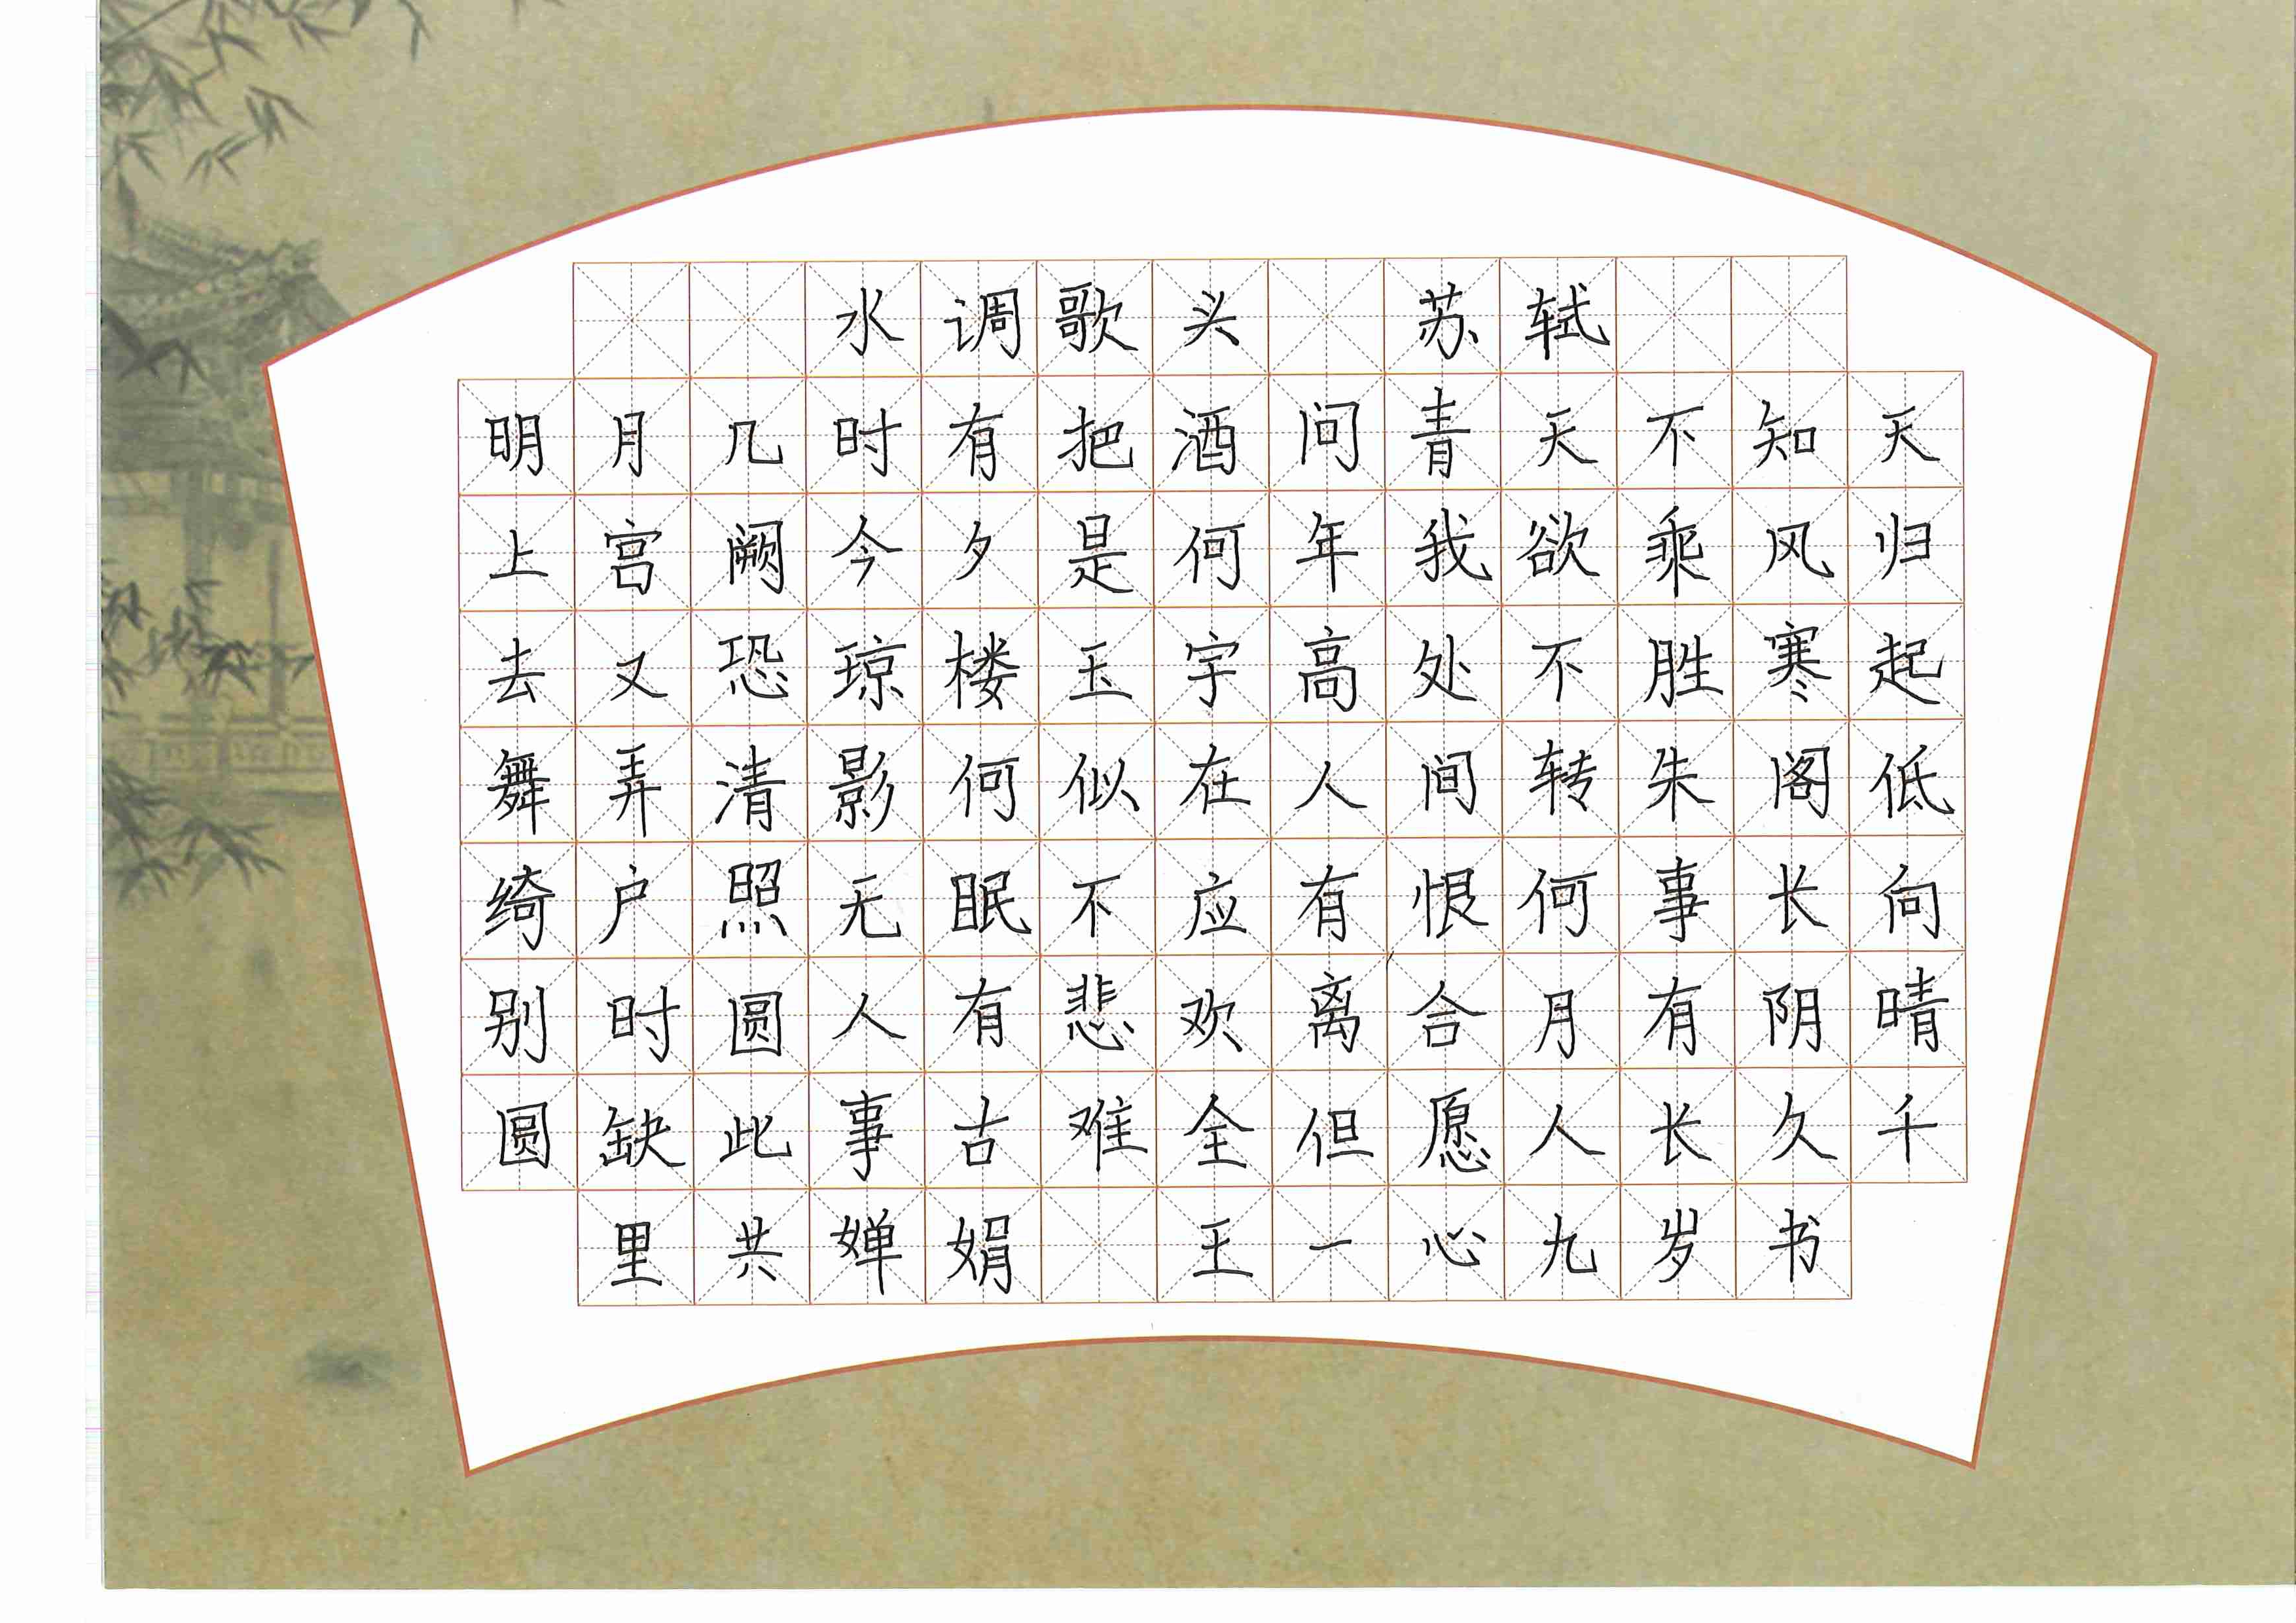 水调歌头 苏轼
明月几时有把酒问青天不知天
上宫阙今夕是何年我欲乘风归
去又恐琼楼玉宇高处不胜寒起
舞弄清影何似在人间转朱阁低
绮户照无眠不应有恨何事长向
别时圆人有悲欢离合月有阴晴
圆缺此事古难全但愿人长久千
里共婵娟 王一心九岁书